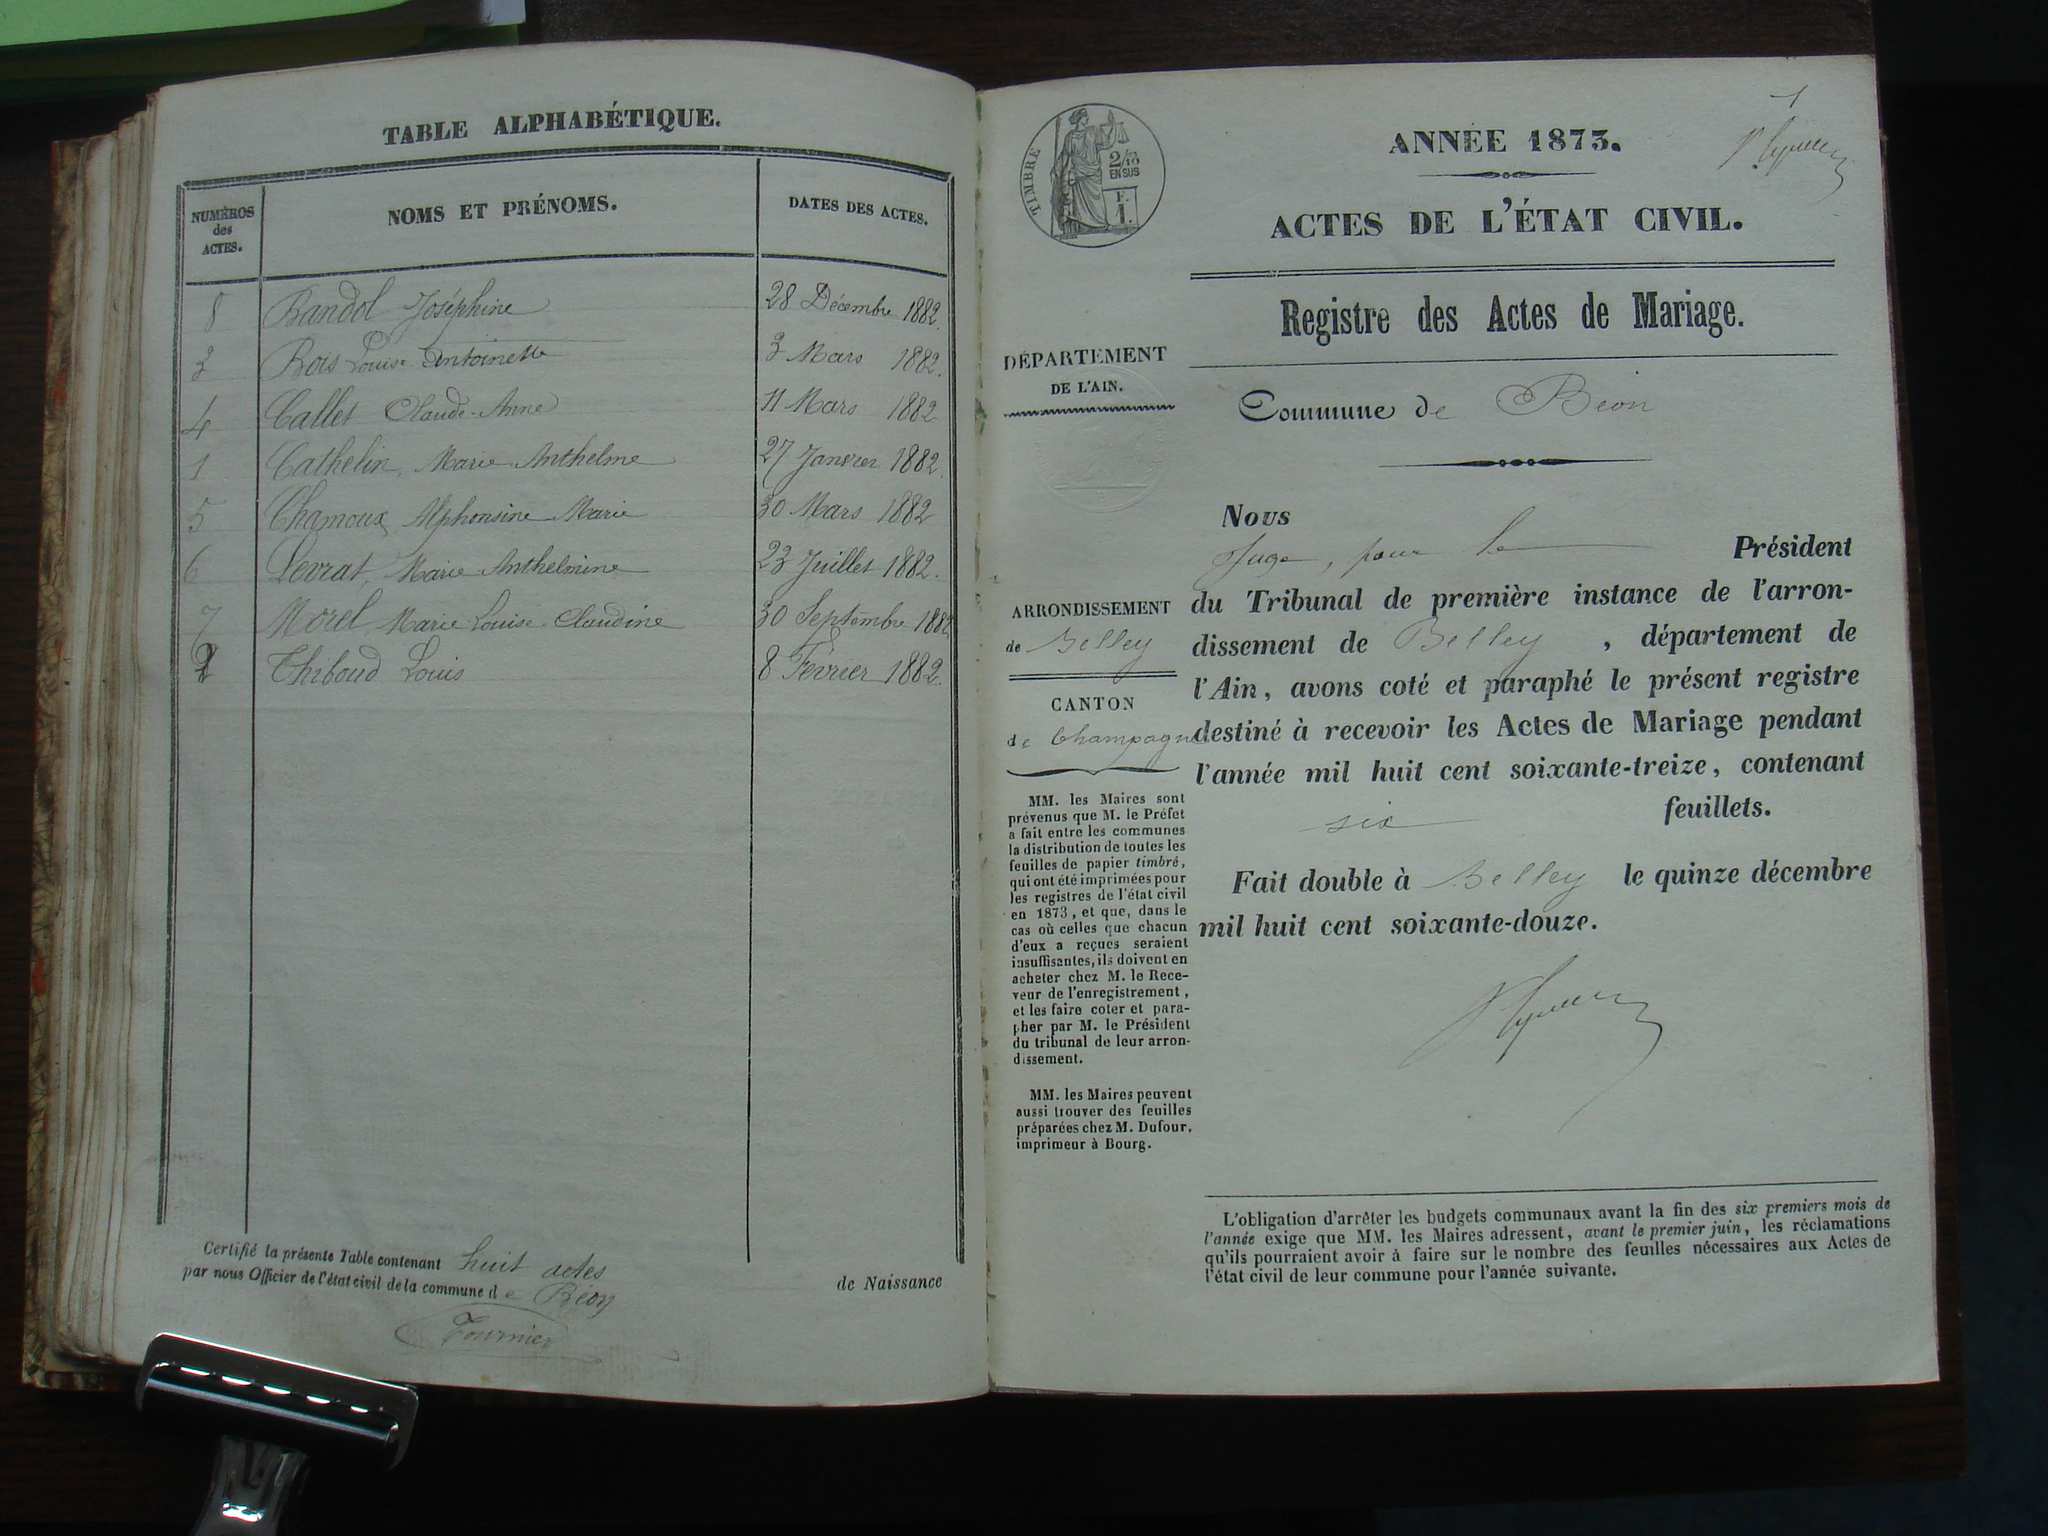 TABLE ALPHABÉTIQUE.
NUMÉROS des ACTES.
NOMS ET PRÉNOMS.
DATES DES ACTES.
8 Bandol Joséphine 28 Décembre 1882.
3 Bois Louise Antoinette 3 Mars 1882.
4 Callet Claude-Anne 11 Mars 1882
1 Cathelin, Marie Anthelme 27 Janvier 1882.
5 Chamoux Alphonsine Marie 30 Mars 1882
6 Levrat, Marie Anthelmine 23 Juillet 1882.
7 Morel Marie Louise Claudine 30 Septembre 1882
2 Thiboud Louis 8 Février 1882.
Certifié la présente Table contenant huit actes de Naissance
par nous Officier de l'état civil de la commune de Béon
Fournier
1
TIMBRE
2/10
EN SUS
F.
1.
ANNÉE 1873.
ACTES DE L'ÉTAT CIVIL.
Registre des Actes de Mariage.
DÉPARTEMENT
DE L'AIN.
Commune de Béon
ARRONDISSEMENT
de Belley
CANTON
de Champagne
MM. les Maires sont
prévenus que M. le Préfet
a fait entre les communes
la distribution de toutes les
feuilles de papier timbré,
qui ont été imprimées pour
les registres de l'état civil
en 1873, et que, dans le
cas où celles que chacun
d'eux a reçues seraient
insuffisantes, ils doivent en
acheter chez M. le Rece-
veur de l'enregistrement,
et les faire coter et para-
pher par M. le Président
du tribunal de leur arron-
dissement.
MM. les Maires peuvent
aussi trouver des feuilles
préparées chez M. Dufour,
imprimeur à Bourg.
Nous
Juge, pour le Président
du Tribunal de première instance de l'arron-
dissement de Belley, département de
l'Ain, avons coté et paraphé le présent registre
destiné à recevoir les Actes de Mariage pendant
l'année mil huit cent soixante-treize, contenant
six feuillets.
Fait double à Belley le quinze décembre
mil huit cent soixante-douze.
L'obligation d'arrêter les budgets communaux avant la fin des six premiers mois de
l'année exige que MM. les Maires adressent, avant le premier juin, les réclamations
qu'ils pourraient avoir à faire sur le nombre des feuilles nécessaires aux Actes de
l'état civil de leur commune pour l'année suivante.